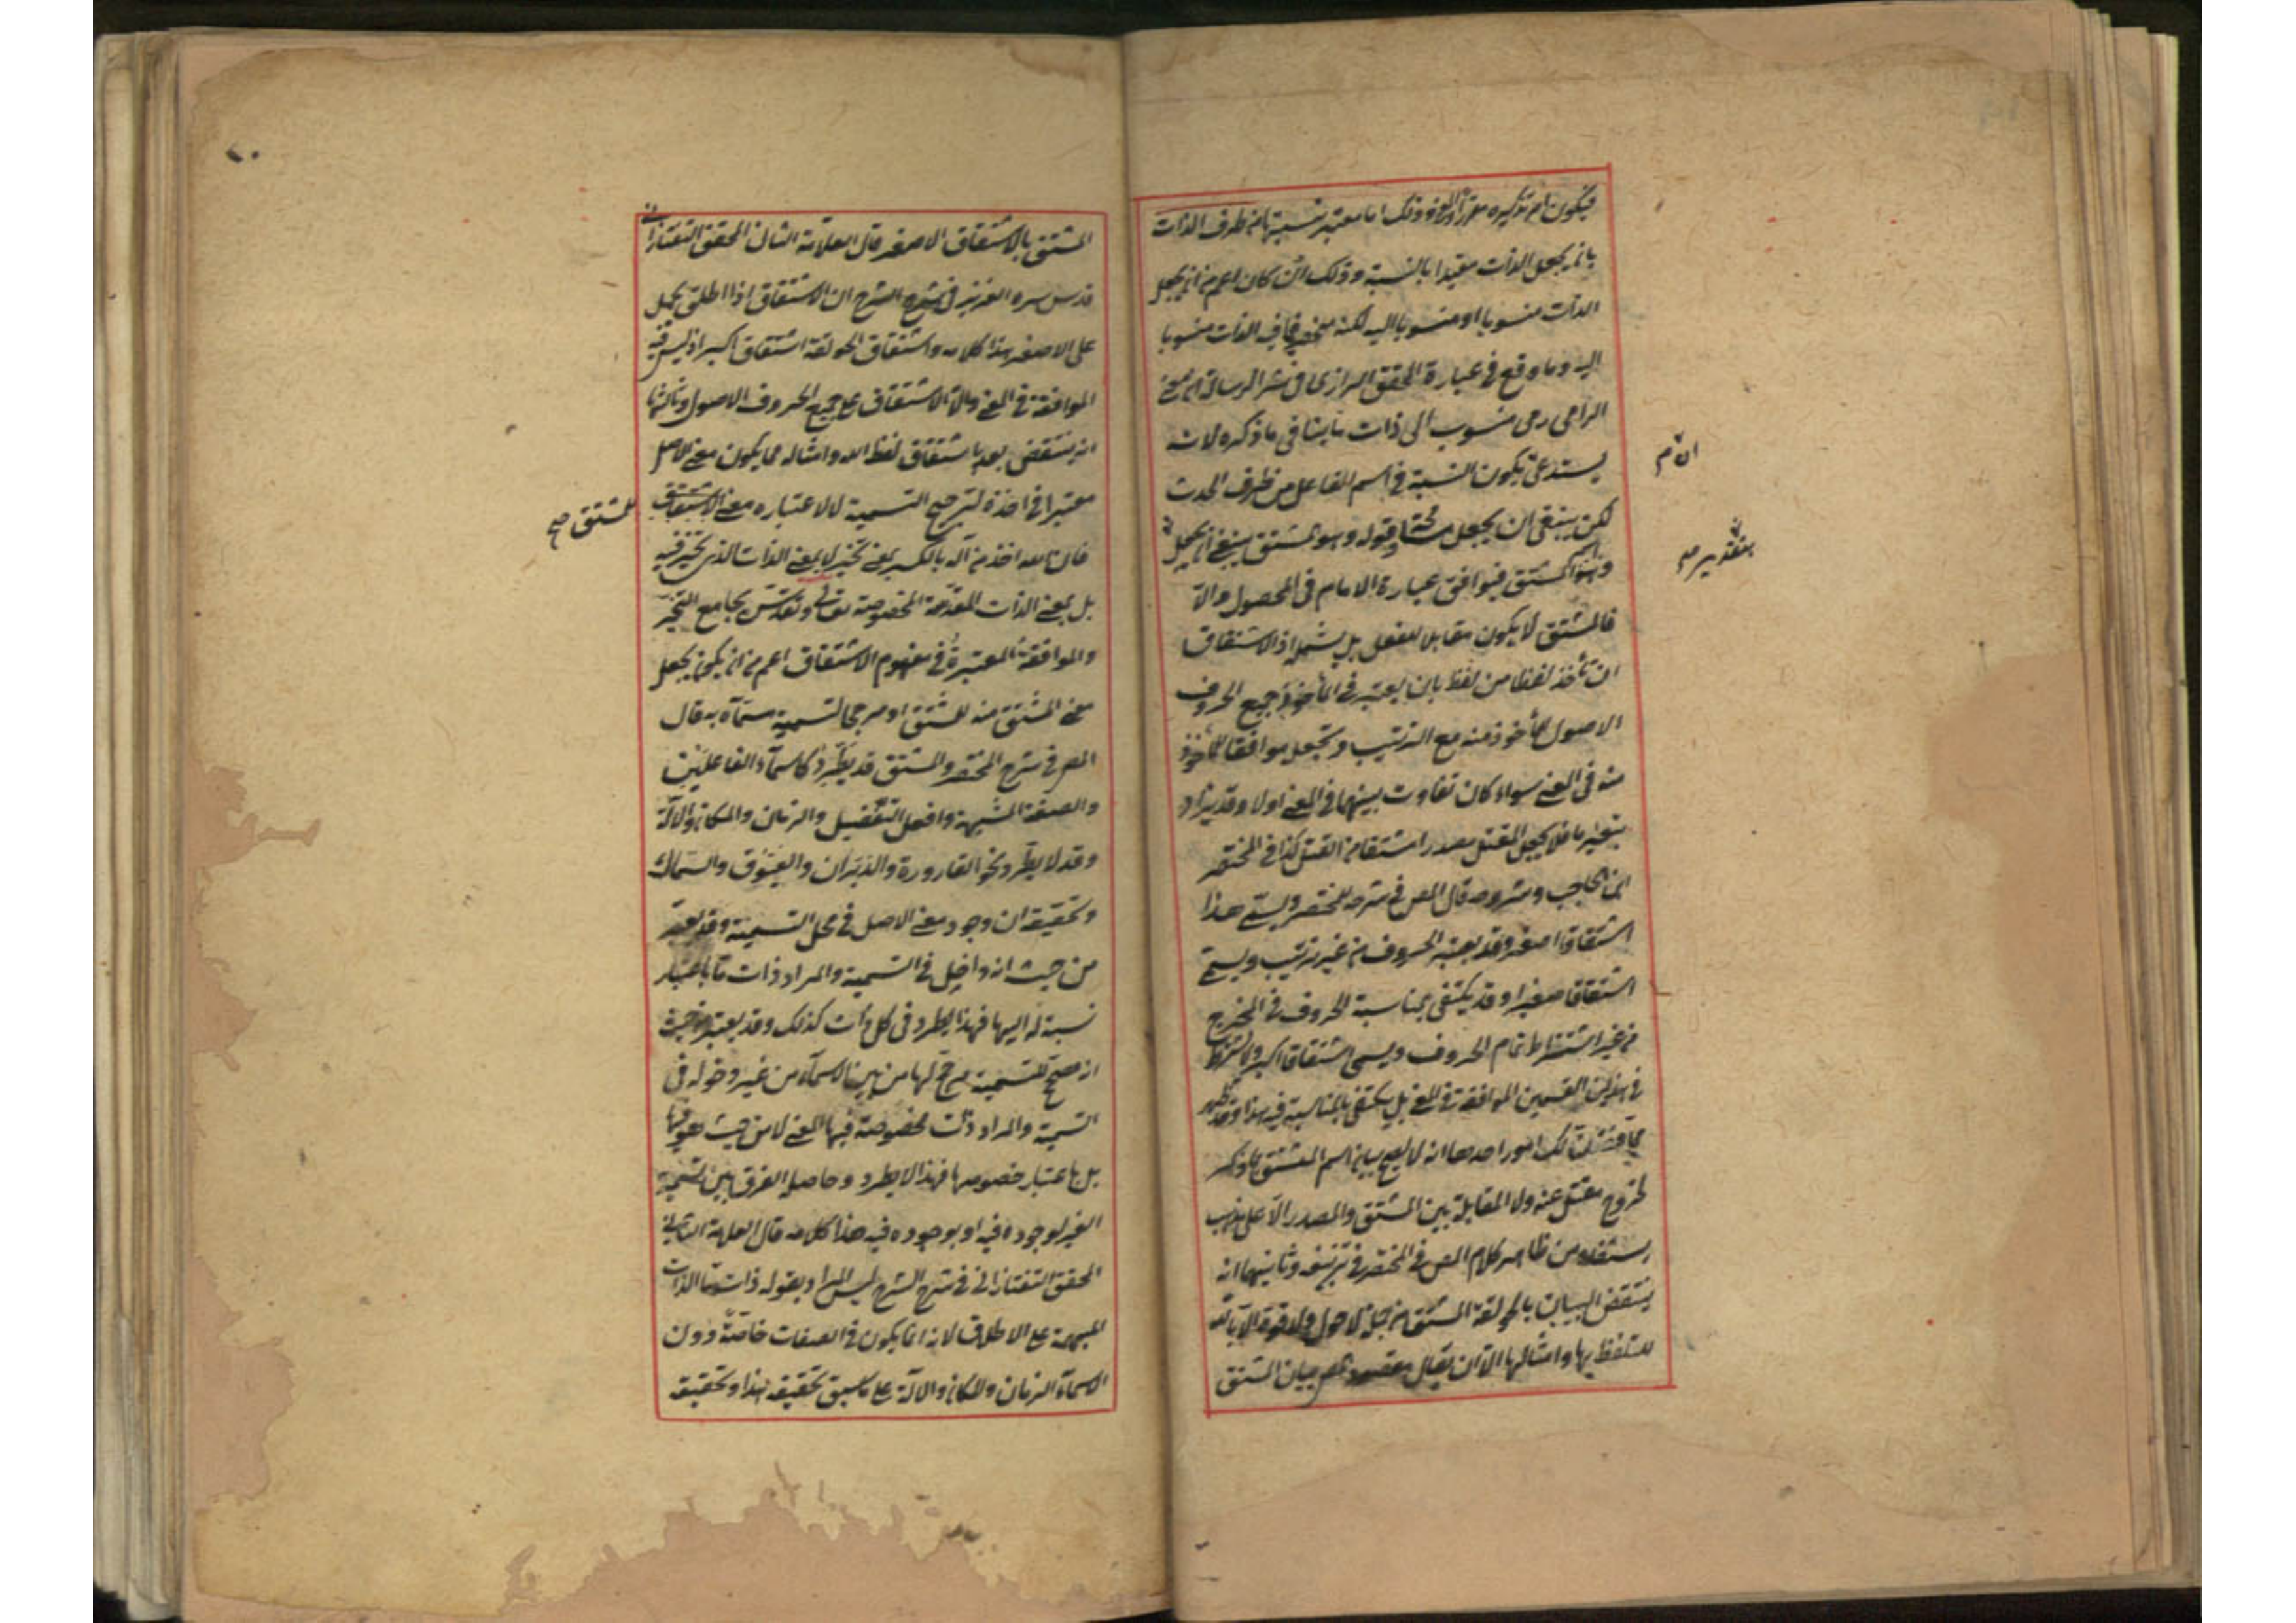 فيكون تذكيره وذلك اما معتبر نسبتها من طرف الذات
بانه يجعل الذات مقيدا بالنسبة وذلك ان كان اعم من ان يجعل
الذات منسوبا او منسوبا اليه لكنه الذات منسوبا
اليه وما وقع في عبارة المحقق الرازي في شرح الرسالة ان معنى
الرامي رمى منسوب الى ذات ما ينافي ما ذكره لانه
يستدعي يكون النسبة في اسم الفاعل من طرف الحدث
لكن ينبغي ان يجعل قوله وهو المشتق ينبغي ان يجعل
المشتق فيوافق عبارة الامام في المحصول والا
فالمشتق لا يكون مقابلا للفعل بل يشمله اذ الاشتقاق
ان تأخذ لفظا من لفظ بان يعتبر في المأخوذ جميع الحروف
الاصول للمأخوذ منه مع الترتيب وتجعل موافقا للمأخوذ
منه في المعنى سواء كان تفاوت بينهما في المعنى اولا وقد يزاد
بتغيير ما فلا يجعل المقتل مصدرا مشتقا من القتل كذا في المختصر
ابن الحاجب وشروحه قال المص في شرحه للمختصر ويسمى هذا
اشتقاقا اصغر وقد يعتبر الحروف من غير ترتيب ويسمى
اشتقاقا صغيرا وقد يكتفى بمناسبة الحروف في المخرج
من غير اشتراط تمام الحروف ويسمى اشتقاقا اكبر ولا يشترط
في هذين القسمين الموافقة في المعنى بل يكتفى بالمناسبة فيه هذا وقد ظهر
لك امور احدها انه لا يصح بيان اسم المشتق بما ذكر
لخروج مقتل عنه ولا المقابلة بين المشتق والمصدر الا على مذهب
من ظاهر كلام المص في المختصر في تزييفه وثانيهما انه
ينتقض البيان بالحولقة المشتق من جملة لا حول ولا قوة الا بالله
للتلفظ بها وامثالها الا ان يقال مقصوده بيان المشتق
ان م
بتقدير صح
المشتق بالاشتقاق الاصغر قال العلامة الثاني المحقق التفتازاني
قدس سره العزيز في شرح الشرح ان الاشتقاق اذا اطلق يحمل
على الاصغر هذا كلامه واشتقاق الحولقة اشتقاق اكبر اذ ليس فيه
الموافقة في المعنى والا لاشتقاق على جميع الحروف الاصول وثالثها
انه ينتقض بعد باشتقاق لفظ الله وامثاله مما يكون معنى الاصل
معتبرا في اخذه لترجيح التسمية لا لاعتباره معنى الاشتقاق
للمشتق صح
فان الله اخذ من اله بالكسر بمعنى تحير لا بمعنى الذات الذي تحير فيه
بل بمعنى الذات المقدسة المخصوصة تعالى وتقدس بجامع التحير
والموافقة المعتبرة في مفهوم الاشتقاق اعم من ان يكون يجعل
معنى المشتق منه للمشتق او مرجحا لتسمية مسماه به قال
المص في شرح المختصر والمشتق قد يطرد كاسماء الفاعلين
والصفة المشبهة وافعل التفضيل والزمان والمكان والالة
وقد لا يطرد نحو القارورة والدبران والعيوق والسماك
وتحقيقه ان وجود معنى الاصل في محل التسمية وقد يعتبر
من حيث انه داخل في التسمية والمراد ذات ما باعتبار
نسبة له اليها فهذا يطرد في كل ذات كذلك وقد يعتبر من حيث
انه مصحح للتسمية مرجح لها من بين الاسماء من غير دخوله في
التسمية والمراد ذات مخصوصة فيها المعنى لا من حيث هو فيها
بل باعتبار خصوصها فهذا لا يطرد وحاصله الفرق بين تسمية
الغير لوجوده فيه او بوجوده فيه هذا كلامه قال العلامة الثاني
المحقق التفتازاني في شرح الشرح ليس المراد بقوله ذات ما الذات
المبهمة على الاطلاق لانه انما يكون في الصفات خاصة دون
الاسماء الزمان والمكان والالة على ما سبق تحقيقه هذا وتحقيقه